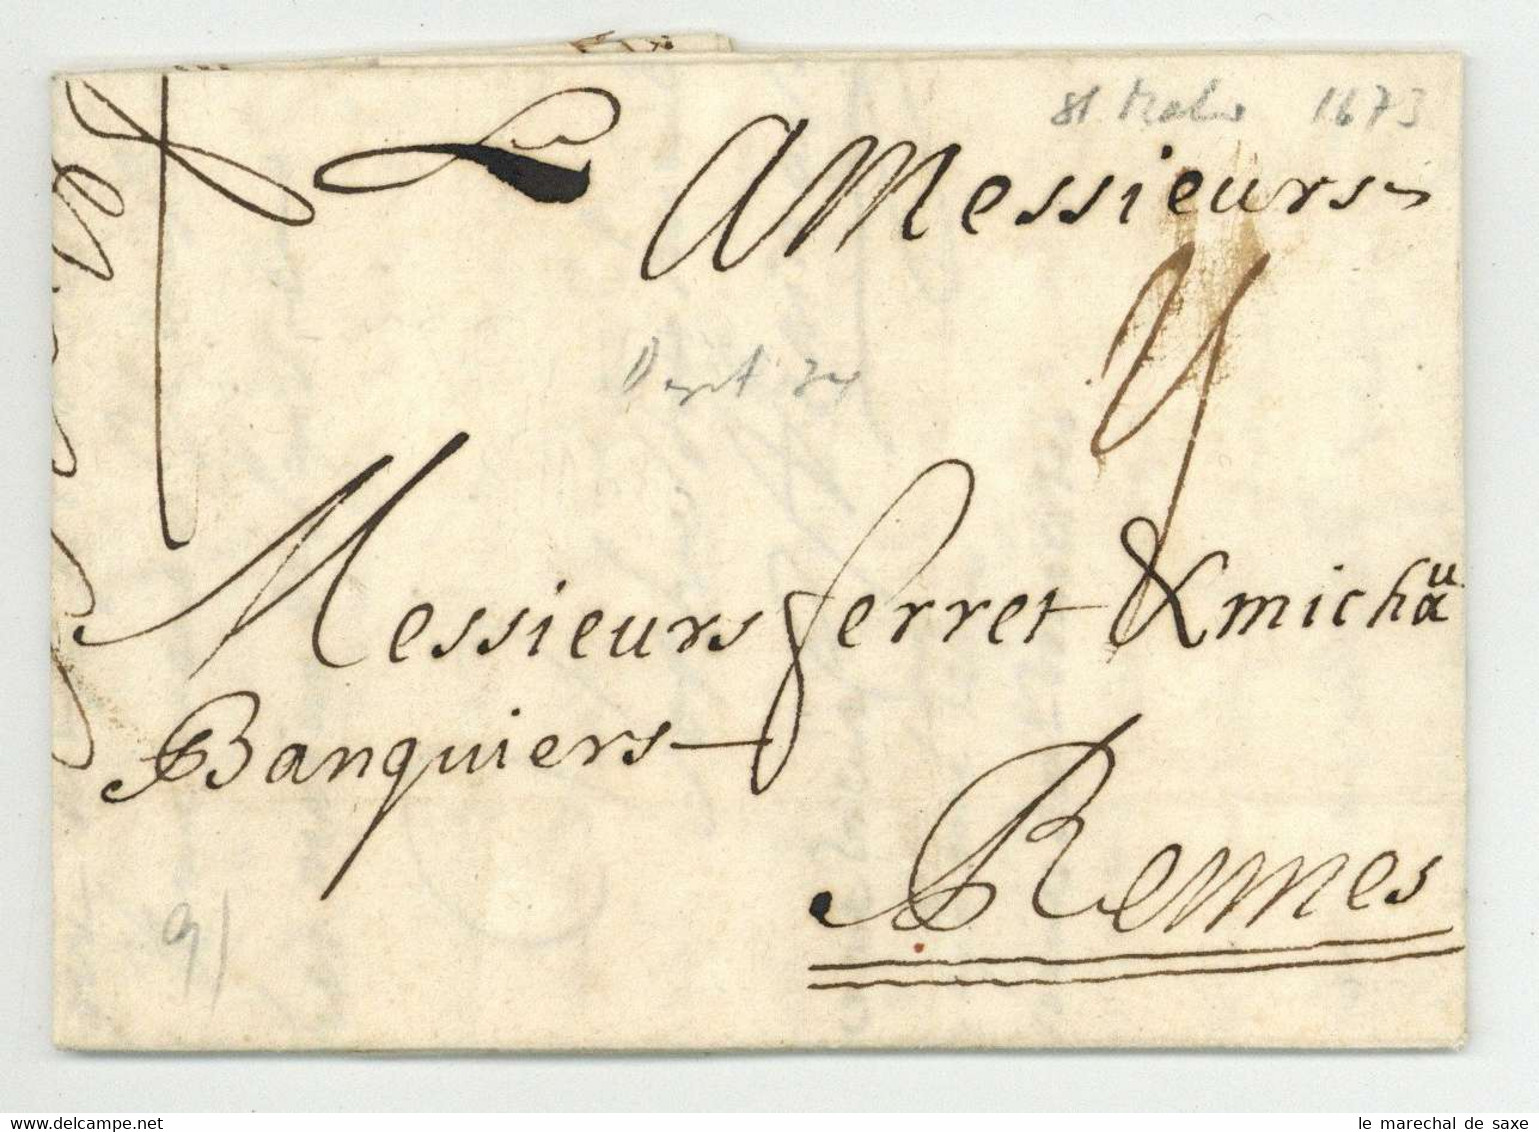 St Malo 1673
A Messieurs
Messieurs ferret & michau
Banquiers
Rennes
91
le marechal de saxe